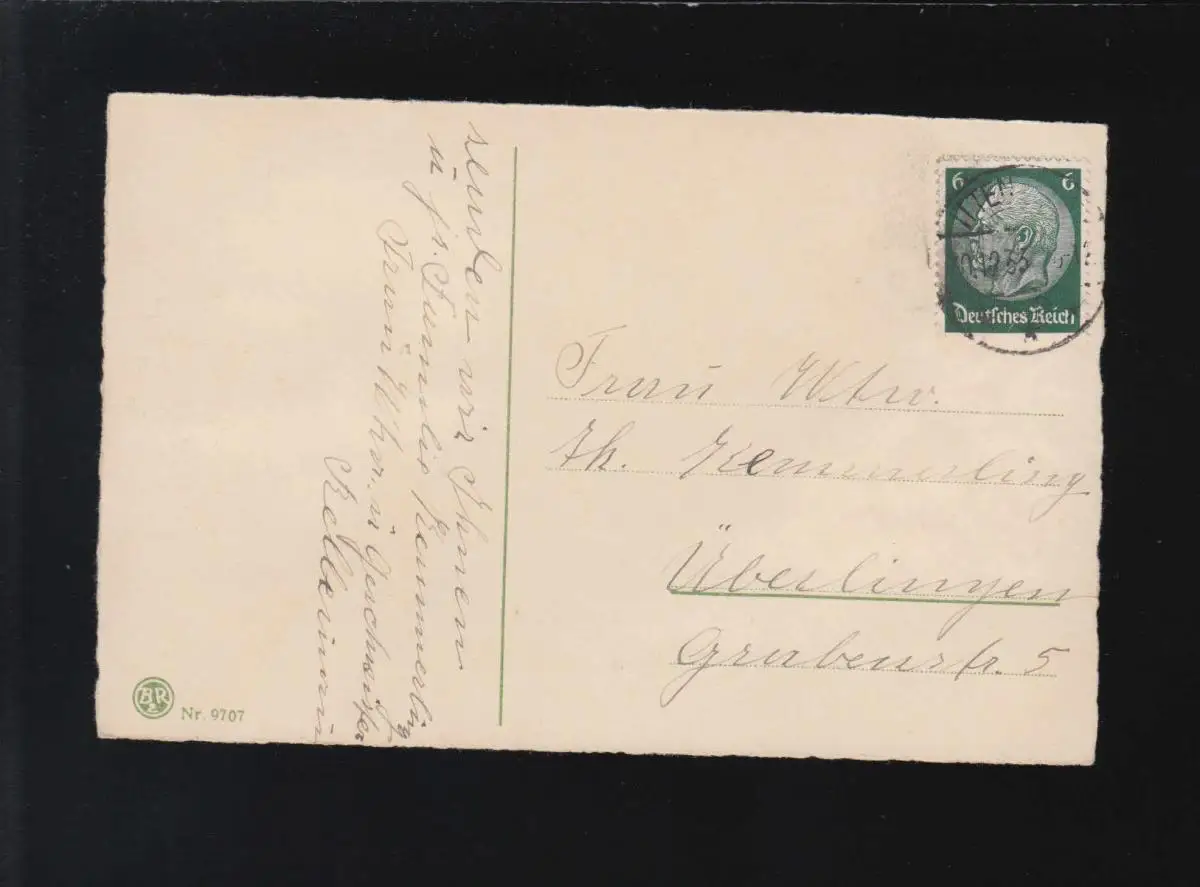 senden wir Ihnen
u. Familie Kemmerling
Frau u. Geschwister
6 6
ITTEN
Deutsches Reich
Frau Wtw.
Th. Kemmerling
Überlingen
Grabenstr. 5
BR
Nr. 9707